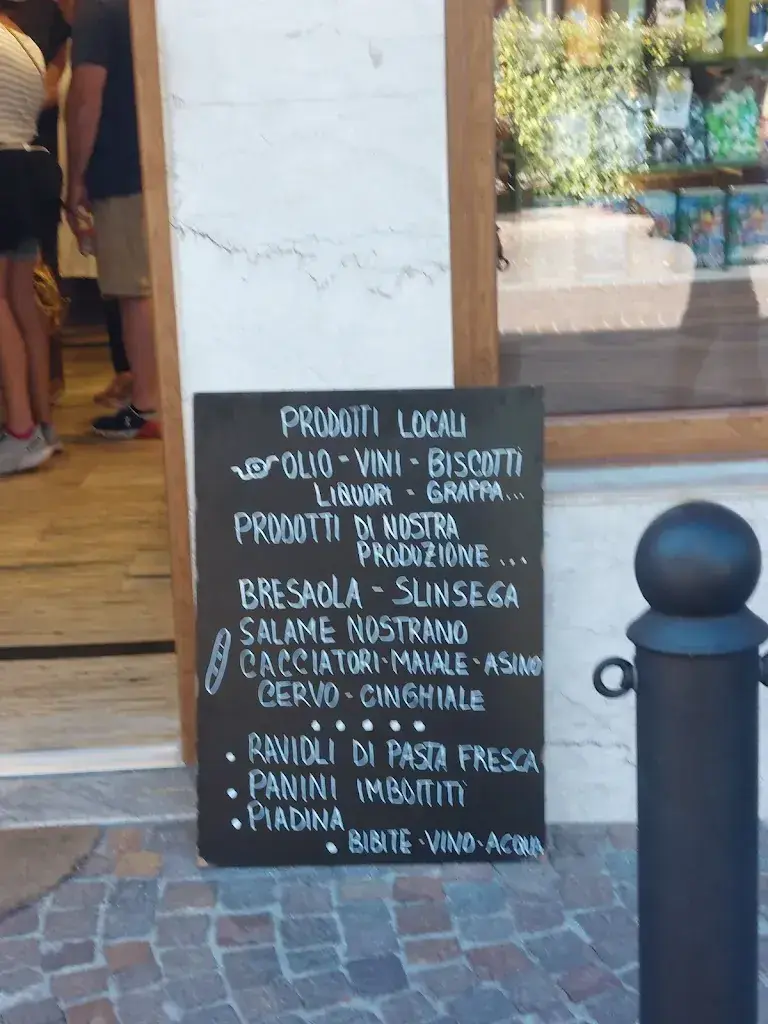 PRODOTTI LOCALI
OLIO - VINI - BISCOTTI
LIQUORI - GRAPPA...
PRODOTTI DI NOSTRA
PRODUZIONE ...
BRESAOLA - SLINSEGA
SALAME NOSTRANO
CACCIATORI - MAIALE - ASINO
CERVO - CINGHIALE
• RAVIOLI DI PASTA FRESCA
• PANINI IMBOITITI
• PIADINA
• BIBITE - VINO - ACQUA